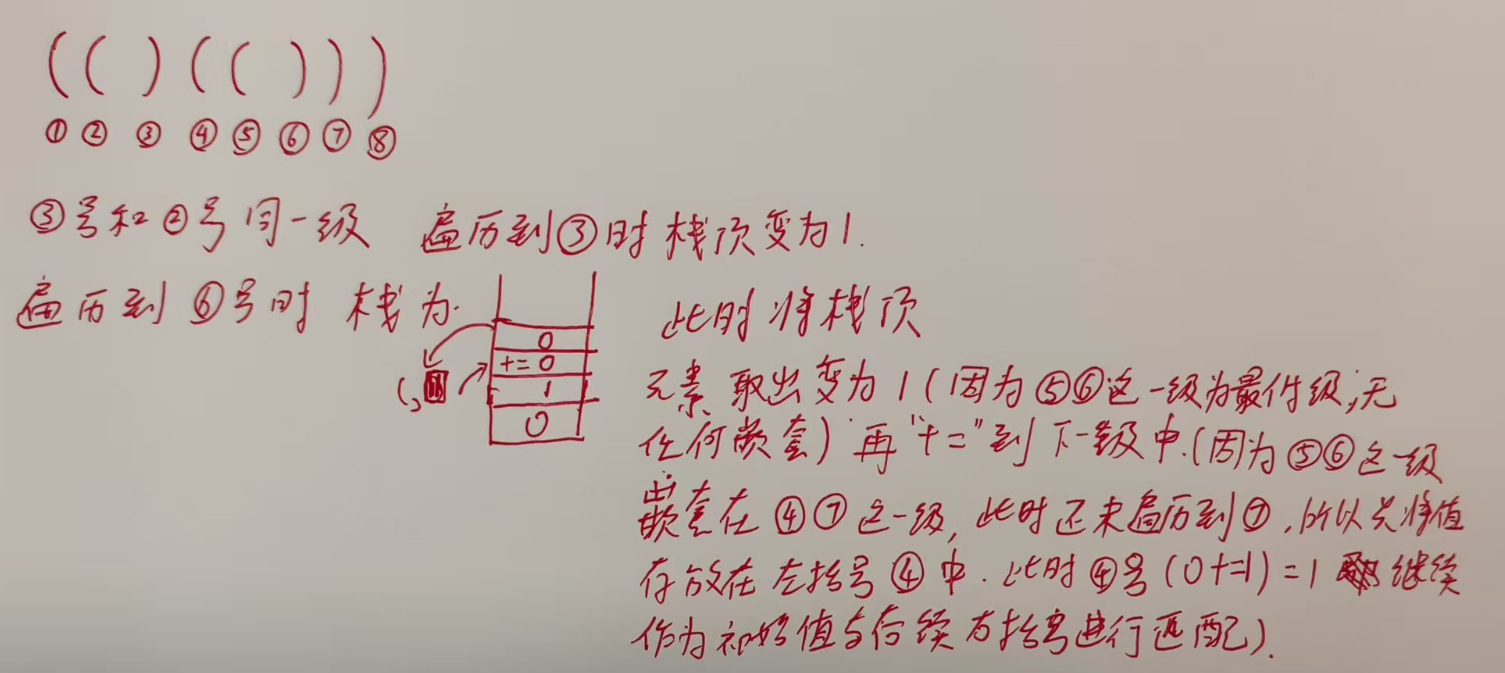 (()(()))
① ② ③ ④ ⑤ ⑥ ⑦ ⑧
③号和②号同一级 遍历到③时栈顶变为1.
遍历到⑥号时 栈为.
0
+=0
1
0
此时将栈顶
元素取出变为1(因为⑤⑥这一级为最低级,无
任何嵌套)再"+="到下一级中.(因为⑤⑥这一级
嵌套在④⑦这一级,此时还未遍历到⑦,所以先将值
存放在左括号④中.此时④号(0+=1)=1 继续
作为初始值与后续右括号进行匹配).